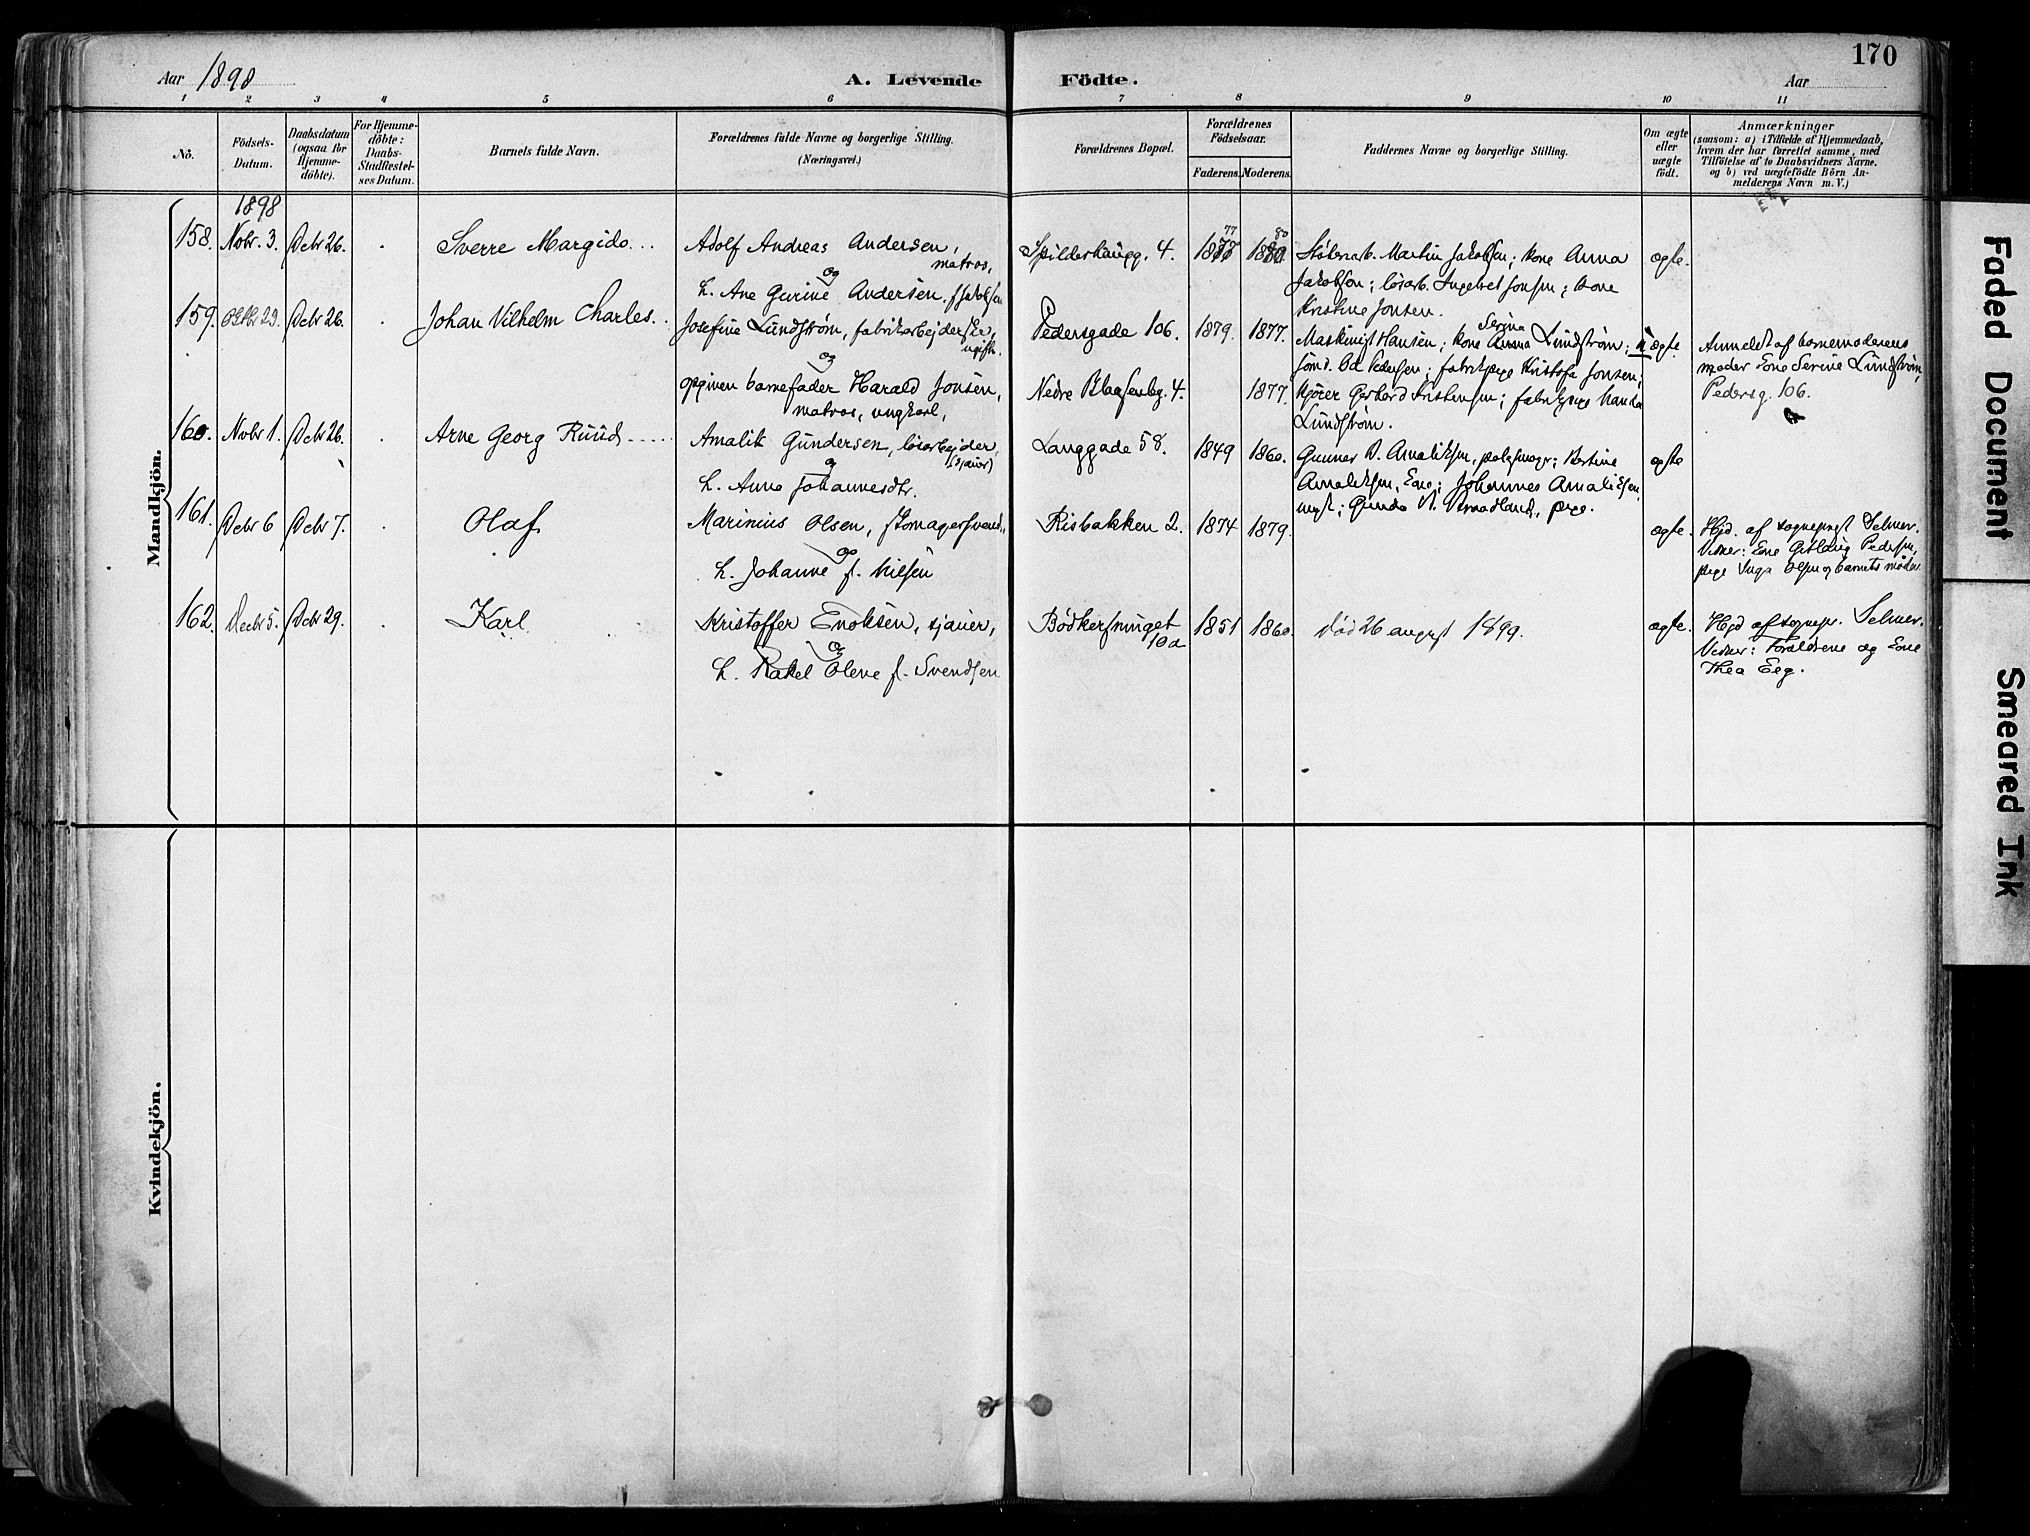 170
Aar 1898
A. Levende Födte.
Aar
1 2 3 4 5 6 7 8 9 10 11
No.
Födsels-
Datum.
Daabsdatum
(ogsaa for
Hjemme-
döbte).
For Hjemme-
döbte:
Daabs-
Stadfæstel-
ses Datum.
Barnets fulde Navn.
Forældrenes fulde Navne og borgerlige Stilling.
(Næringsvei.)
Forældrenes Bopæl.
Forældrenes
Födselsaar.
Faderens. Moderens.
Faddernes Navne og borgerlige Stilling.
Om ægte
eller
uægte
födt.
Anmærkninger
(saasom: a) i Tilfælde af Hjemmedaab,
hvem der har forrettet samme, med
Tilföielse af to Daabsvidners Navne.
og b) ved uægtefödte Börn An-
melderens Navn m. V.)
Mandkjön.
1898
158. Nobr. 3. Debr 26. Sverre Margido
Adolf Andreas Andersen,
matros,
og
h. Ane Gurine Andersen, f. Jakobsen
4. 1877 1880
77 80
Martin Jakobsen; kone Anna
Jakobsen; løsarb. Ingebret Jonsen; kone
Kristine Jonsen.
ægte.
159. Oktbr 23. Debr 26. Johan Vilhelm Charles.
Josefine Lundstrøm, fabrikarbejderske,
ugift.
og
opgiven barnefader Harald Jonsen,
matros, ungkarl,
Pedersgade 106. 1879. 1877.
Nedre Blaasenbg. 4. 1877.
Serina
Maskinist Hansen; kone Anna Lundstrøm;
Pedersen; fabrikpige Jonsen;
Kjører Gerhard Kristensen; fabrikpige
Lundstrøm.
uægte
Anmeldt af barnemoderens
moder Kone Serine Lundstrøm,
Pedersg. 106.
160. Nobr 1. Debr 26. Arne Georg Ruud
Amalik Gundersen, løsarbejder,
(sjauer)
og
h. Anna Johannesdtr.
Langgade 58. 1849 1860.
Gunnar Amaliksen, Bertine
Amaliksen, Johannes Amaliksen,
pige.
ægte
161. Debr 6 Debr 7. Olaf
Marinius Olsen, skomagersvend,
og
h. Johanne f. Nilsen
Risbakken 2. 1874 1879.
ægte.
Hjd. af sogneprest Selmer.
Vidner: Pedersen,
pige Inga Olsen og barnets moder
162. Decbr 5. Debr 29. Karl
Kristoffer Enoksen, sjauer,
og
h. Rakel Olene f. Svendsen
Bødkersmuget
10a
1851 1860. død 26 august 1899.
ægte.
Hjd af sognepr. Selmer.
Vidner: Forældrene og Kone
Thea Eeg.
Kvindekjön.
Faded Document
Smeared Ink